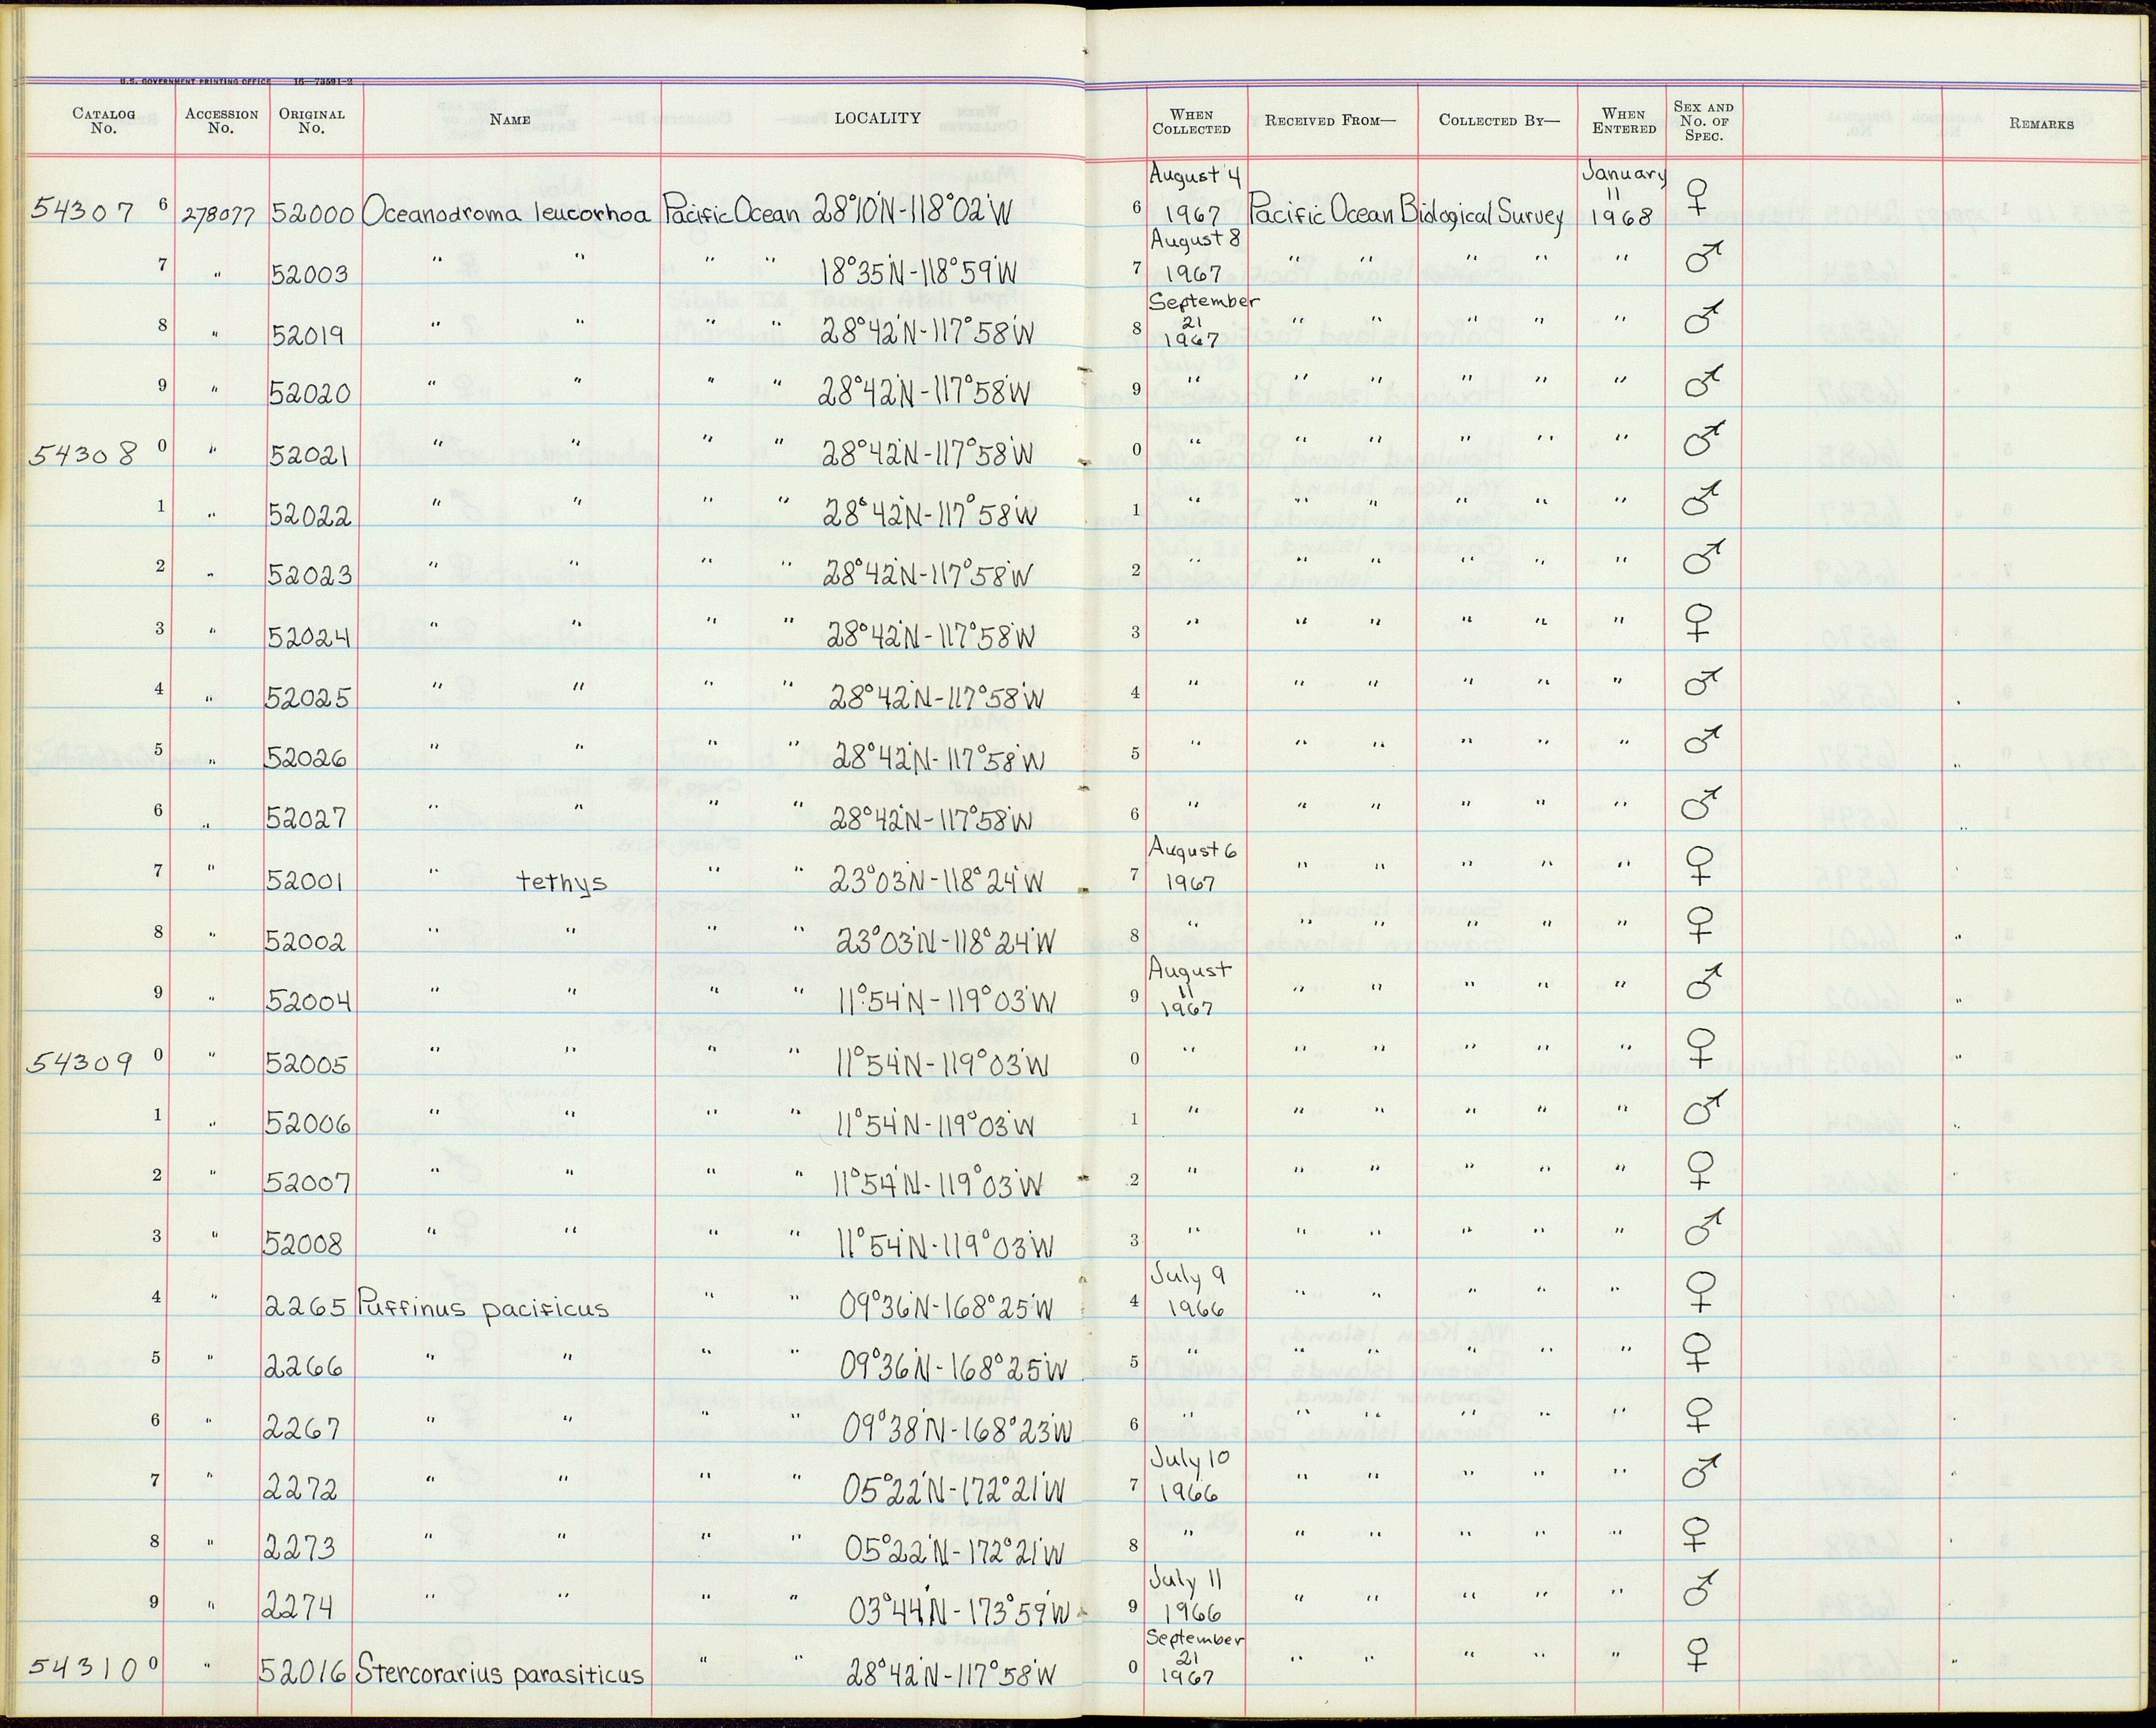 U.S. GOVERNMENT PRINTING OFFICE 16—73591-2
CATALOG No. ACCESSION No. ORIGINAL No. NAME LOCALITY WHEN COLLECTED RECEIVED FROM— COLLECTED BY— WHEN ENTERED SEX AND No. OF SPEC. REMARKS
54307 6 278077 52000 Oceanodroma leucorhoa Pacific Ocean 28°10'N-118°02'W 6 August 4 1967 Pacific Ocean Biological Survey January 11 1968 ♀
7 " 52003 " " " " 18°35'N-118°59'W 7 August 8 1967 " " " " " ♂
8 " 52019 " " " " 28°42'N-117°58'W 8 September 21 1967 " " " " " ♂
9 " 52020 " " " " 28°42'N-117°58'W 9 " " " " " " ♂
54308 0 " 52021 " " " " 28°42'N-117°58'W 0 " " " " " " ♂
1 " 52022 " " " " 28°42'N-117°58'W 1 " " " " " " ♂
2 " 52023 " " " " 28°42'N-117°58'W 2 " " " " " " ♂
3 " 52024 " " " " 28°42'N-117°58'W 3 " " " " " " ♀
4 " 52025 " " " " 28°42'N-117°58'W 4 " " " " " " ♂
5 " 52026 " " " " 28°42'N-117°58'W 5 " " " " " " ♂
6 " 52027 " " " " 28°42'N-117°58'W 6 " " " " " " ♂
7 " 52001 " tethys " " 23°03'N-118°24'W 7 August 6 1967 " " " " " ♀
8 " 52002 " " " " 23°03'N-118°24'W 8 " " " " " " ♀
9 " 52004 " " " " 11°54'N-119°03'W 9 August 11 1967 " " " " " ♂
54309 0 " 52005 " " " " 11°54'N-119°03'W 0 " " " " " " ♀
1 " 52006 " " " " 11°54'N-119°03'W 1 " " " " " " ♂
2 " 52007 " " " " 11°54'N-119°03'W 2 " " " " " " ♀
3 " 52008 " " " " 11°54'N-119°03'W 3 " " " " " " ♂
4 " 2265 Puffinus pacificus " " 09°36'N-168°25'W 4 July 9 1966 " " " " " ♀
5 " 2266 " " " " 09°36'N-168°25'W 5 " " " " " " ♀
6 " 2267 " " " " 09°38'N-168°23'W 6 " " " " " " ♀
7 " 2272 " " " " 05°22'N-172°21'W 7 July 10 1966 " " " " " ♂
8 " 2273 " " " " 05°22'N-172°21'W 8 " " " " " " ♀
9 " 2274 " " " " 03°44'N-173°59'W 9 July 11 1966 " " " " " ♂
54310 0 " 52016 Stercorarius parasiticus " " 28°42'N-117°58'W 0 September 21 1967 " " " " " ♀